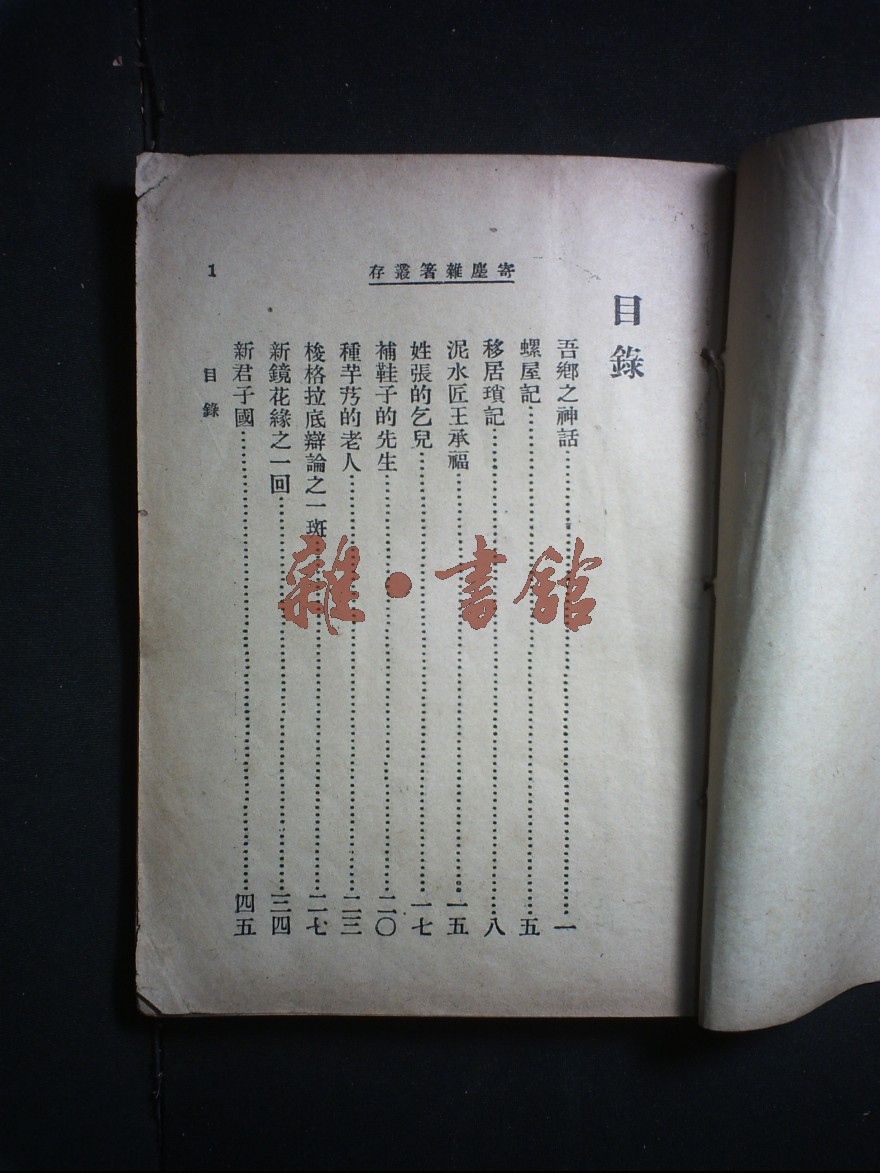 寄塵雜著叢存
目錄
吾鄉之神話…………一
螺屋記…………五
移居瑣記…………八
泥水匠王承福…………一五
姓張的乞兒…………一七
補鞋子的先生…………二〇
種芋艿的老人…………二三
梭格拉底辯論之一斑…………二七
新鏡花緣之一回…………三四
新君子國…………四五
目錄
1
雜·書館